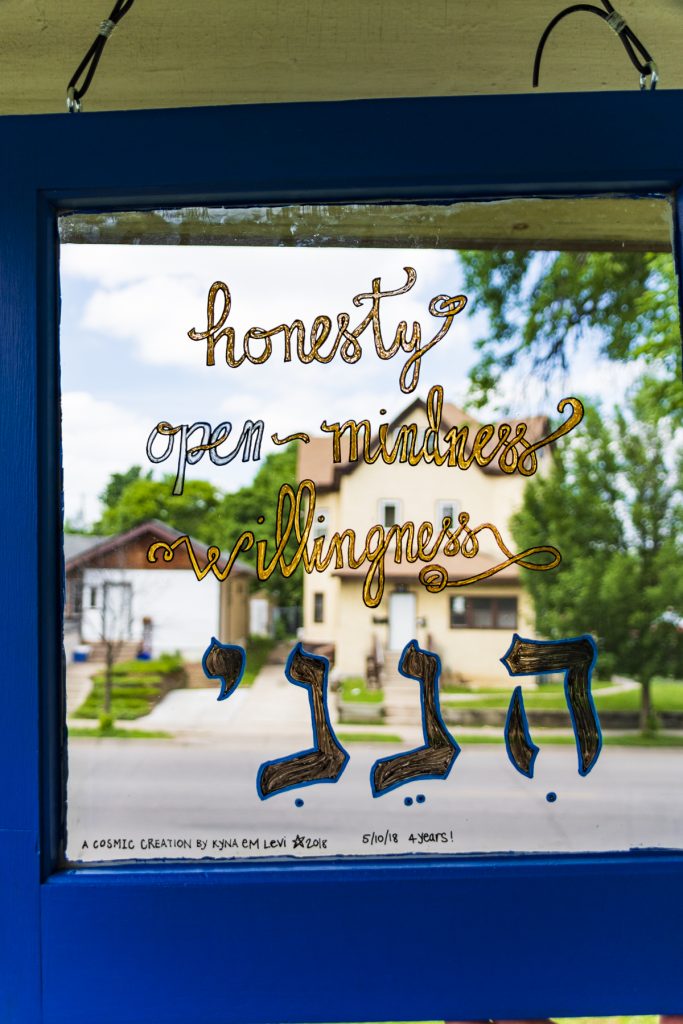 honesty
open~mindness
willingness
הִנֵנִי
A COSMIC CREATION BY KYNA EM LEVI ☆2018 5/10/18 4 years!